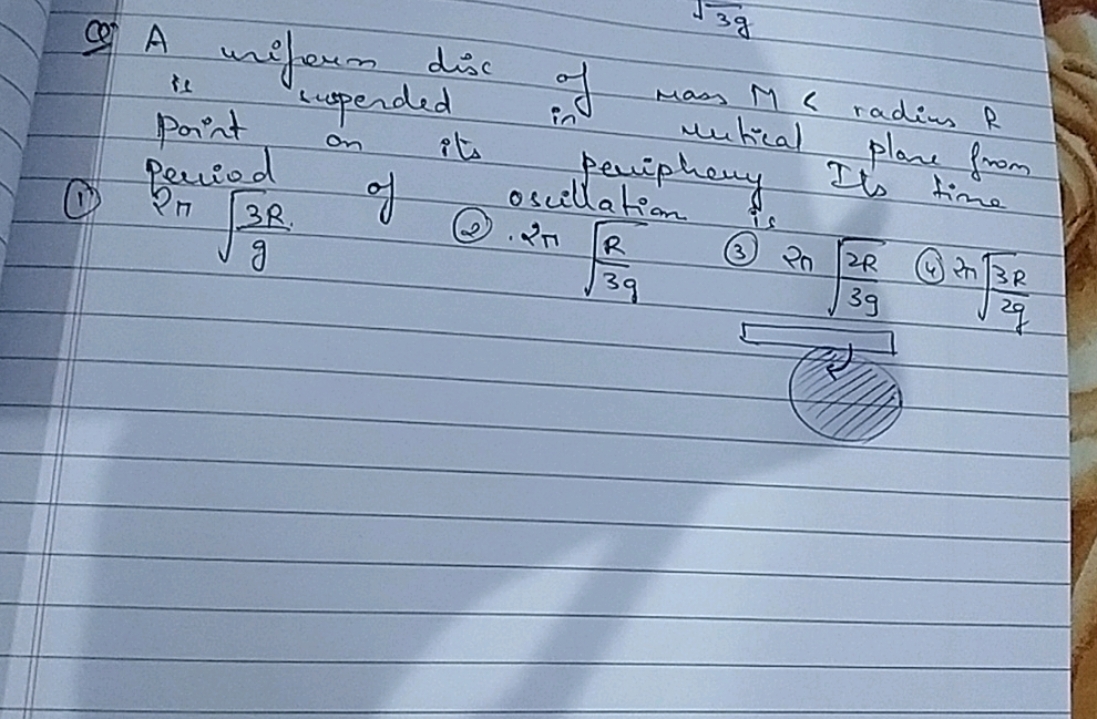 √3g
Q A uniform disc of mass M & radius R
is suspended in vertical plane from
point on its periphery Its time
period of oscillation is
① 2π √3R/g ② 2π √R/3g ③ 2π √2R/3g ④ 2π √3R/2g